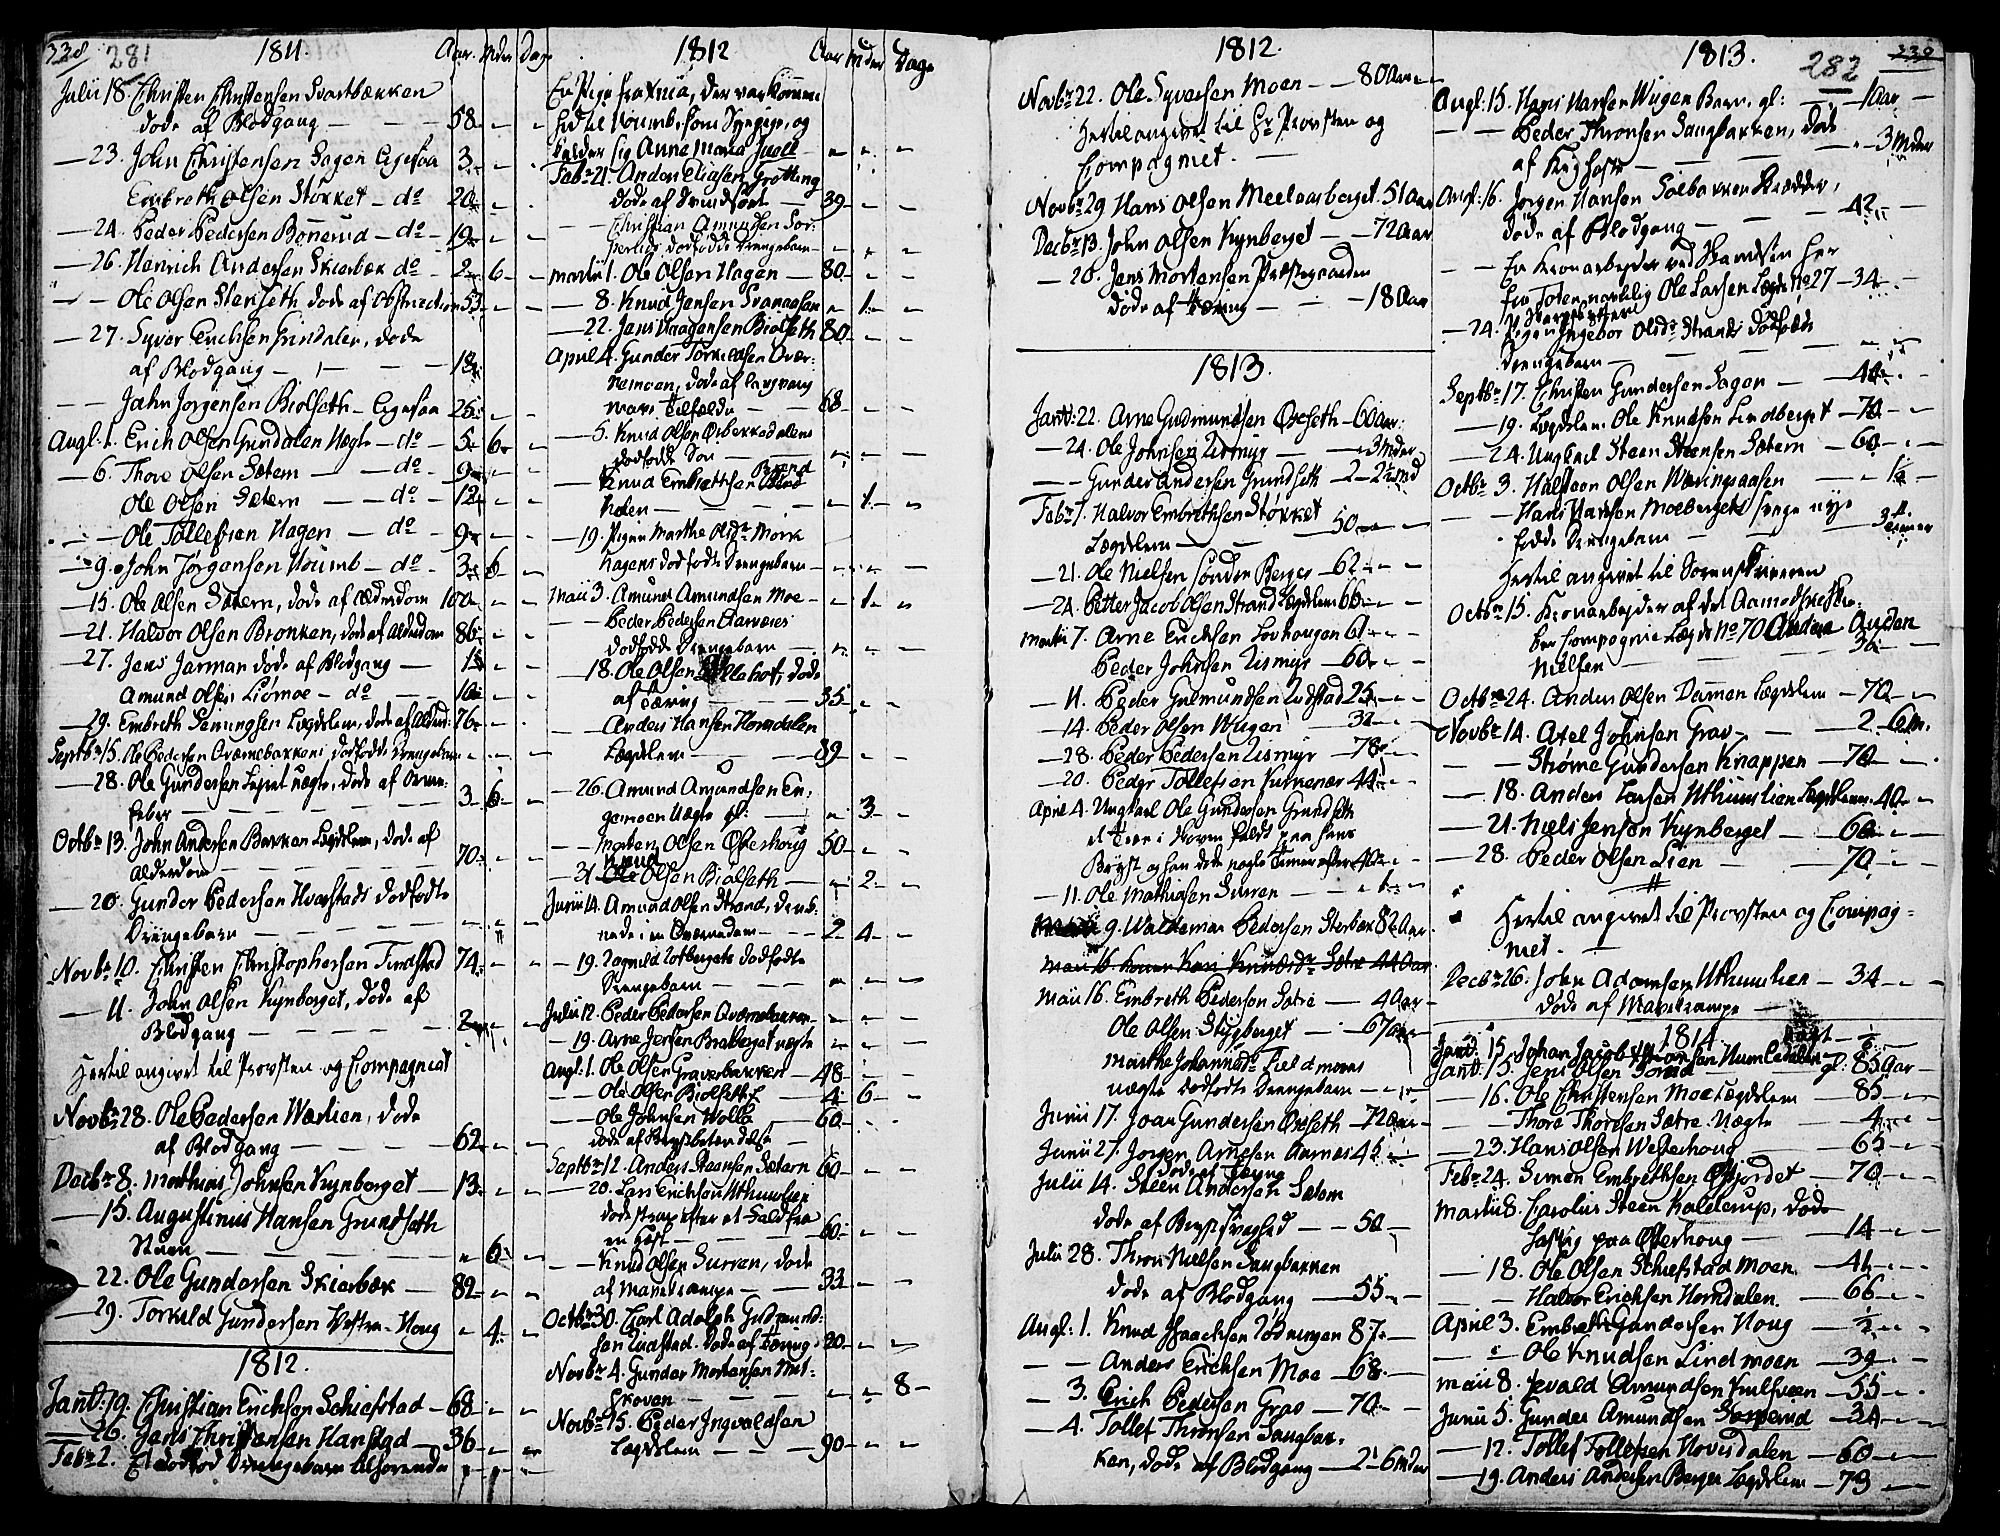 338 281 1811 Aar. Mdr. Dage
Julii 18. Christen Christensen Svartbækken
døde af Blodgang — 58
— 23. John Christensen Sagen Ligesaa 3
Embreth Olsen Støkket — do 20
— 24. Peder Pedersen Bonerud — do — 19
— 26. Henrich Andersen Skierbæk do — 2 6
— — Ole Olsen Stenseth døde af Obstruction 53
— 27. Syver Erichsen Grindalen, døde
af Blodgang — 18
— — John Jørgensen Biølseth — Ligesaa 25
Augt. 1. Erich Olsen Grindalen Uægte — do — 5 6
— 6. Thore Olsen Sætern — do — 9
Ole Olsen Sætern — do — 12
— — Ole Tollefsen Hagen — do — 9
— 9. John Jørgensen Houmb — do — 3 6
— 15. Ole Olsen Sætern, døde af Alderdom 100
— 21. Halvor Olsen Bronken, døde af Alderdom 86
— 27. Jens Jarman døde af Blodgang — 15
Amund Olsen Liømoe — do — 10
— 29. Embreth Lægdslem, døde af Alderd: 76
Septbr 15. Ole Pedersen Qværnebakkens dødfødte Drengebarn
— 28. Ole Gundersen uægte, døde af
Feber — 3 6
Octbr 13. John Andersen Bakken Lægdslem, døde af
Alderdom — 70
— 20. Gunder Pedersen Hvarstads dødfødte
Drengebarn —
Novbr 10. Christen Christophersen Tindstad 74
— 11. John Olsen Kynberget, døde af
Blodgang — 2
Hertil angivet til Provsten og Compagniet
Novbr 28. Ole Pedersen Wæslien, døde
af Blodgang — 62
Decbr 8. Mathias Johnsen Kynberget — 13
— 15. Augustinus Hansen Grundseth
Stuen — 6
— 22. Ole Gundersen Skierbæk — 82
— 29. Torkild Gundersen Vestre-Houg 4
1812.
Janu: 19. Christian Erichsen Schiefstad — 68
— 26. Jens Christensen Hanstad — 36
Febr 2. Et dødfød Drengebarn tilhørende
1812 Aar Mdr Dage
En Pige fra , der var kommen
hid til Houmb, som Syepige, og
kalder sig Anne Maria Juell
Febr 21. Anders Eliasen Grøtting
døde af — 39
— — Christian Amundsen
dødfødte Drengebarn —
Martii 1. Ole Olsen Hagen — 80
— 8. Knud Jensen Svenaasen 1
— 22. Jens Haagensen Biølseth 80
April 4. Gunder Torkildsen Qvær-
nemoen, døde af langvarig
Tilfælde — 68
— 5. Knud Olsen
dødfødte Søn —
— Knud Embrethsen Brend
holen — 1
— 19. Pigen Marthe Olsdr Mørk
hagens dødfødte Drengebarn —
Maii 3. Amund Amundsen Moe — 1
— Peder Pedersen
dødfødte Drengebarn —
— 18. Ole Olsen, døde
af Tæring — 35
— Anders Hansen Horndalen
Lægdslem — 89
— 26. Amund Amundsen En-
gemoen Uægte gl: 3
— Morten Olsen Øfterhoug 50
Knud
— 31. Ole Olsen Biølseth — 2
Junii 14. Amund Olsen Strand, druk-
nede i en Qværnedam — 2 4
— 19. dødfødte
Drengebarn —
Julii 12. Peder Pedersen Qværnebakken
— 19. Arne Jensen Braberget uægte
Augt. 1. Ole Olsen Graverbakken — 48
— — Ole Olsen Biølseth — 4 6
— Ole Johnsen Wolle — 60
døde af Brystbetændelse
Septbr 12. Anders Steensen Sætern 60
— 20. Lars Erichsen Uthuuslien
døde strax efter et Fald fra
en Hest — 60
— Knud Olsen Surren, døde
af Mavekrampe — 33
Octbr 30. Carl Adolph Gudmund-
sen Ludstad, døde af Tæring 20
Novbr 4. Gunder Mortensen
Groven — 8
Novbr 15. Peder Ingvaldsen
Lægdslem — 90
1812.
Novbr 22. Ole Syversen Moen — 80 Aar
Hertil angivet til Hr Provsten og
Compagniet. —
Novbr 29 Hans Olsen Meelaasberget. 51 Aar
Decbr 13. John Olsen Kynberget — 72 Aar
— 20. Jens Mortensen Præstegaarden
døde af Tæring — 18 Aar
1813.
Janu: 22. Arne Gudmundsen Øxseth — 60 Aar
— 24. Ole Johnsen Lismyr — 3 Mdr
— — Gunder Andersen Grundseth 2 — 2½ Md
Febr 7. Halvor Embrethsen Støkket
Lægdslem — 50
— 21. Ole Nielsen Søndre Berger — 62
— 24. Petter Jacob Olsen Strand Lægdslem 66
Martii 7. Arne Erichsen Lovhougen 61
Peder Johnsen Lismyr — 60
— 11. Peder Gudmundsen Ludstad 25
— 14. Peder Olsen Wugen 32
— 28. Peder Pedersen Lismyr — 78
— 20. Peder Tollefsen Kurvenes 44
April 4. Ungkarl Ole Gundersen Grundseth
et Træe i Skoven faldt paa hans
Bryst og han døde nogle Timer efter 40
— 11. Ole Mathiasen Surren — 6
9. Waldemar Pedersen Sterbæk 82 Aar
Maii 16. Konen Kari Knudsdr Sætre 44 Aar
Maii 16. Embreth Pederson Sætre — 4 Aar
Ole Olsen Stygberget — 67 Aar
Marthe Johannesdr Fieldmoens
uægte dødfødte Drengebarn —
Junii 17. Joen Gundersen Øxseth — 72 Aar
Junii 27. Jørgen Arnesen Aarnes 45
døde af Tæring
Julii 14. Steen Andersen Sætern
døde af Brystsvaghed — 50
Julii 28. Thron Nielsen Saugbakken
døde af Blodgang — 55
Augt: 1. Knud Isaachsen Rødningen 87
— — Anders Erichsen Moe — 68
— 3. Erich Pedersen Grav — 70
— 4. Tollef Thronsen Saugbak-
ken, døde af Blodgang — 2 — 6 Mdr
1813. 282 339
Augt: 15. Hans Hansen Wugen Barn, gl: — 1 Aar
— — Peder Thronsen Saugbakken, døde
af Kighoste — 3 Mdr
Augt: 16. Jørgen Hansen Solbakken Skrædder,
døde af Blodgang — 42
— — En Kronarbeyder ved her
fra Toten navnlig Ole Larsen Lægds No 27 — 34
— 24. Pigen Ingebor Olsdr Strands dødfødte
Drengebarn —
Septbr 17. Christen Gundersen Sagen — 44
— 19. Lægdslem Ole Knudsen Lindberget — 70
— 24. Ungkarl Steen Steensen Sætern 60
Octbr 3. Halsteen Olsen Wæringsaasen — 1½
— Hans Hansen Moebergets Svage nye
fødte Drengebarn — 3 Timer
Hertil angivet til Sorenskriveren
Octbr 15. Kronarbeyder af det Aamodtske
Compagnie Lægds No 70 Anders Anders
Nielsen — 36
Octbr 24. Anders Olsen Dammen Lægdslem — 70
Novbr 14. Axel Johnsen Grav — 2 6 M.
— — Størne Gundersen Knappen — 70
— 18. Anders Larsen Uthuuslien Lægdslem 40
— 21. Niels Jensen Kynberget — 60
— 28. Peder Olsen Lien — 70
Hertil angivet til Provsten og Compag-
niet. —
Decbr 26. John Adamsen Uthuuslien — 34
døde af Mavekrampe —
1814
Janu: 15. Johan Jacob Humledalen
Janu: 15. Jens Olsen gl: 85 Aar
— 16. Ole Christensen Moe Lægdslem — 85
— Thore Thoresen Sætre Uægte — 4
— 23. Hans Olsen Westerhoug — 65
Febr 24. Simen Embrethsen Øfjordet — 70
Martii 8. Carolus Steen Kaldterup, døde
hastig paa Øfterhoug — 14
— 18. Ole Olsen Schiefstad Moen 41
— — Halvor Erichsen Horndalen. — 66
April 3. Embreth Gundersen Houg — ½
— Ole Knudsen Lindmoen — 39
Maii 8. Evald Amundsen Kulsveen — 55
Junii 5. Gunder Amundsen — 34
— 12. Tollef Tollefsen Hovesdalen — 60
— 19. Anders Andersen Berger Lægdslem — 73